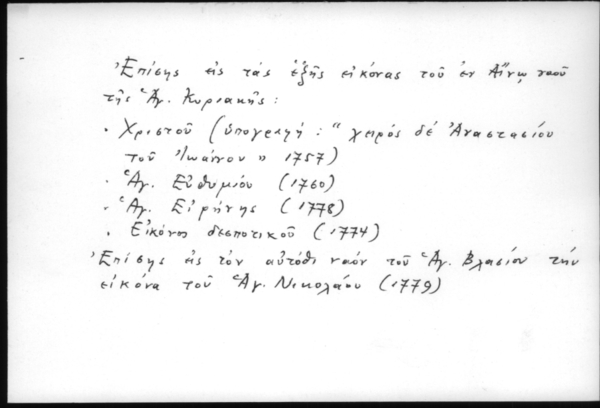 Ἐπίσης εἰς τάς ἑξῆς εἰκόνας τοῦ ἐν Αἴνῳ ναοῦ
τῆς Ἁγ. Κυριακῆς:
· Χριστοῦ (ὑπογραφή: "χειρός δέ Ἀναστασίου
τοῦ Ἰωάννου" 1757)
· Ἁγ. Εὐθυμίου (1760)
· Ἁγ. Εἰρήνης (1778)
· Εἰκόνος δεσποτικοῦ (1774)
Ἐπίσης εἰς τόν αὐτόθι ναόν τοῦ Ἁγ. Βλασίου τήν
εἰκόνα τοῦ Ἁγ. Νικολάου (1779)